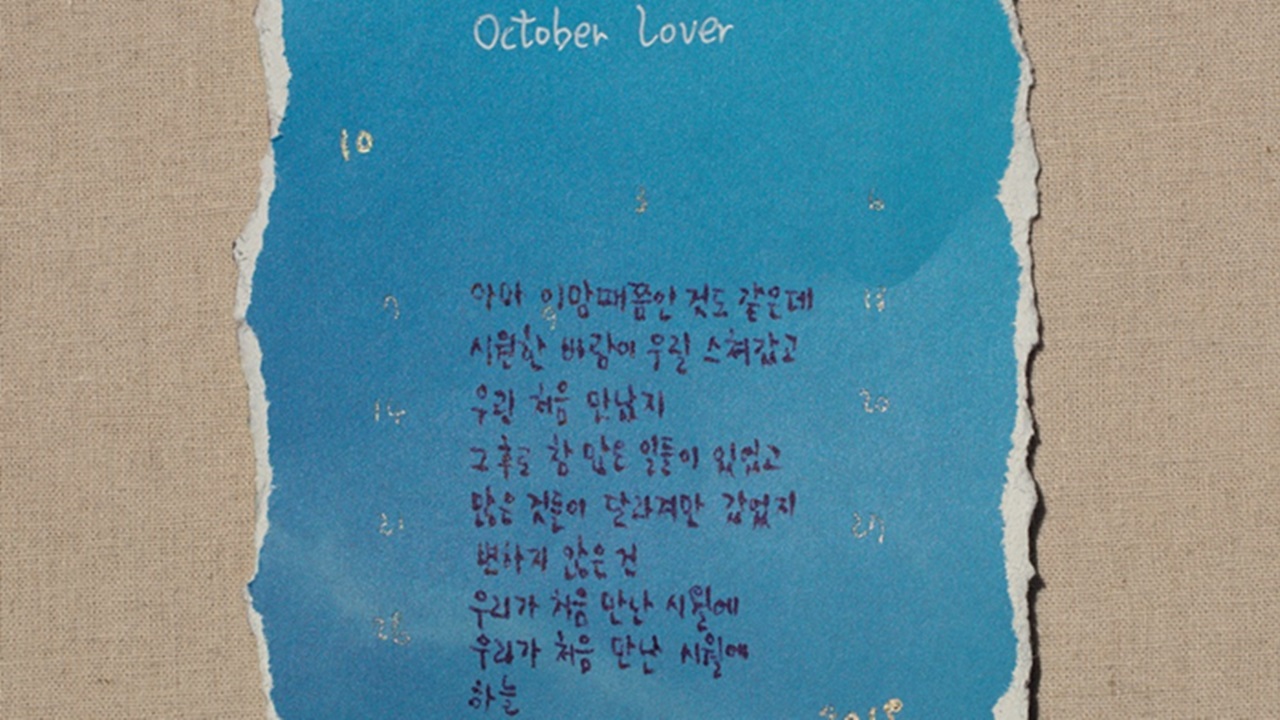 October Lover
10
3 6
아마 이맘때쯤인 것도 같은데
7 9 13
시원한 바람이 우릴 스쳐갔고
14 우린 처음 만났지 20
그 후로 참 많은 일들이 있었고
많은 것들이 달라져만 갔었지
21 27
변하지 않은 건
우리가 처음 만난 시월에
28
우리가 처음 만난 시월에
하늘